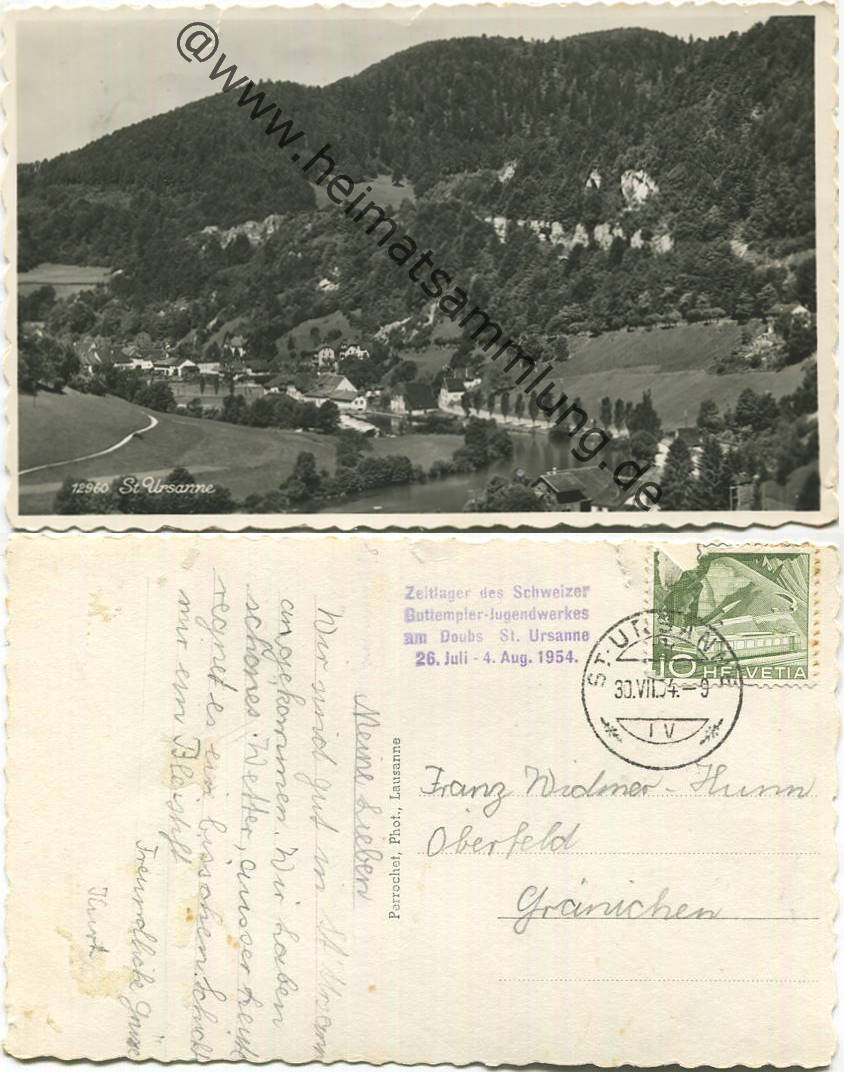 @www.heimatsammlung.de
12960 St Ursanne
Zeltlager des Schweizer
Guttempler-Jugendwerkes
am Doubs St. Ursanne
26. Juli - 4. Aug. 1954.
ST. URSANNE
30.VII.54.-9
10 HELVETIA
Franz Widmer-Hunn
Oberfeld
Gränichen
Perrochet, Phot., Lausanne
Meine Lieben
Wir sind gut in St Ursann
angekommen. Wir haben
schönes Wetter, ausser heute
regnet es ein bisschen. Schickt
mir ein Bleistift
Freundliche Grüsse
Kurt